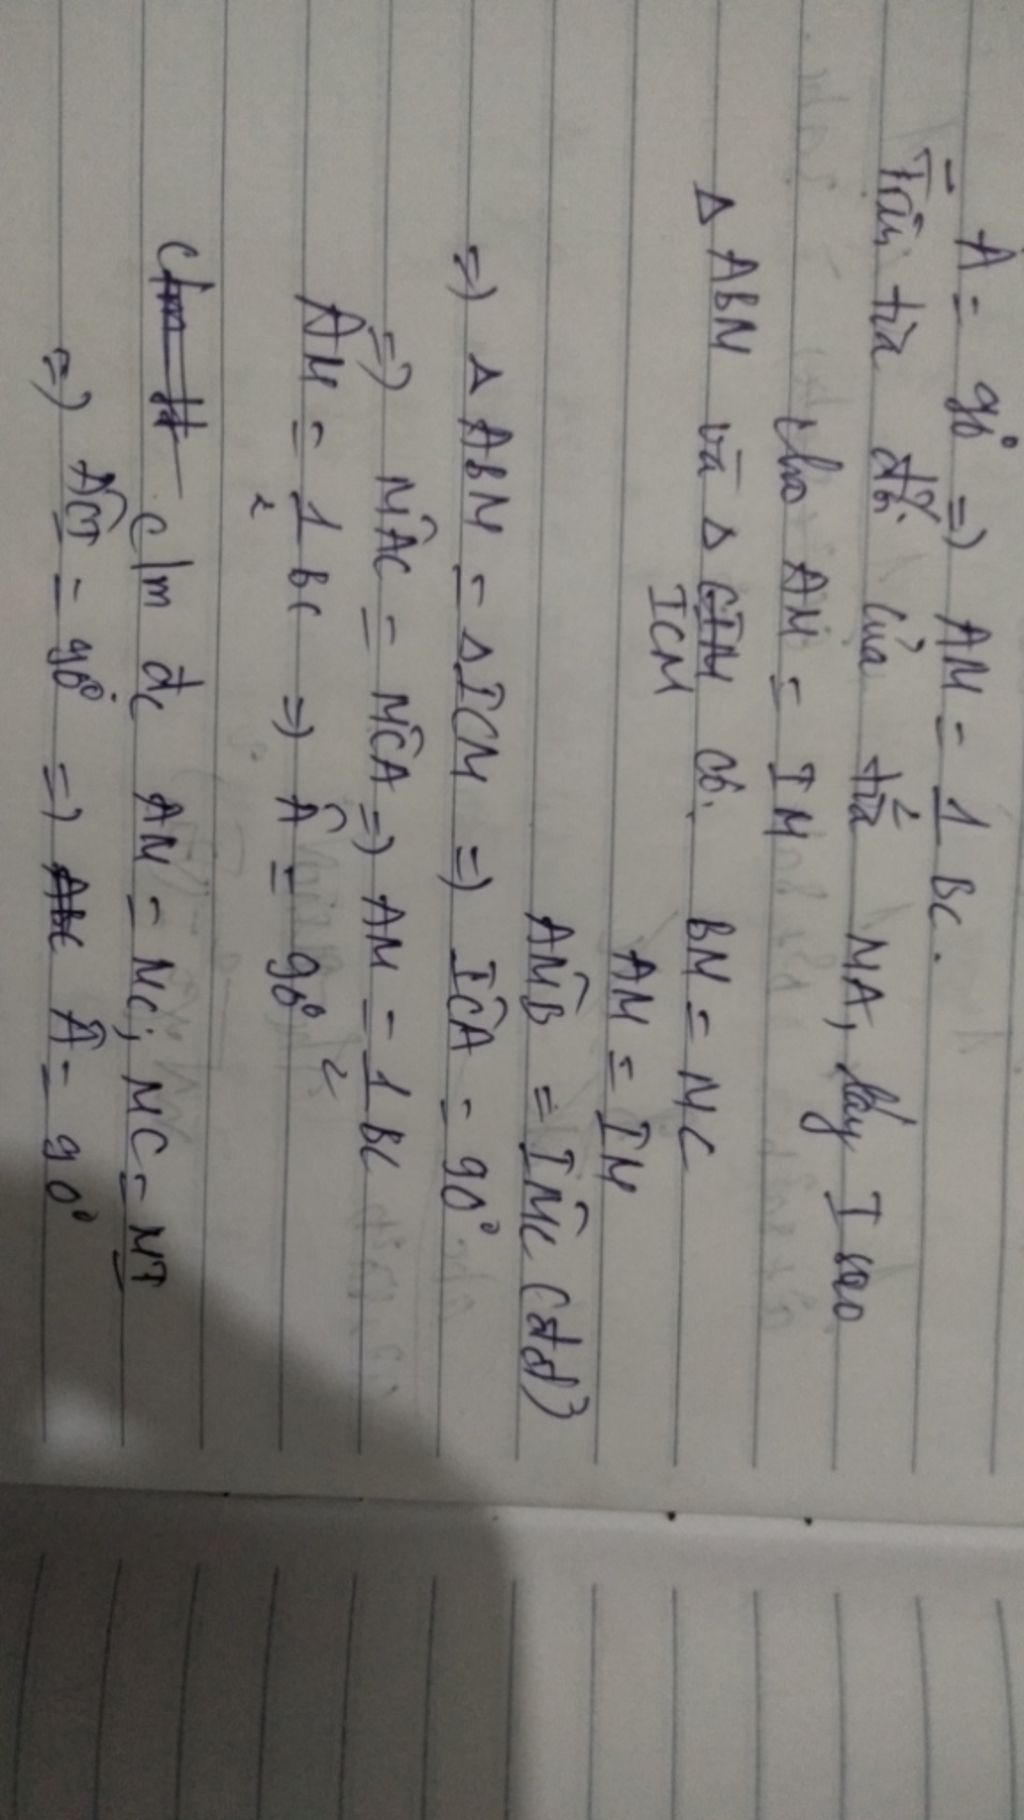 A = 90° => AM = 1 BC.
Trên tia đối của tia MA, lấy I sao
cho AM = IM
Δ ABM và Δ CIM có. BM = MC
ICM
AM = IM
AM̂B = IM̂C (đđ)
=> Δ ABM = ΔICM => IĈA = 90°
=> MÂC = MĈA => AM = 1 BC
2
AM = 1 BC => Â = 90°
2
c/m đc AM = MC; MC = MI
=> AĈI = 90° => ABC Â = 90°